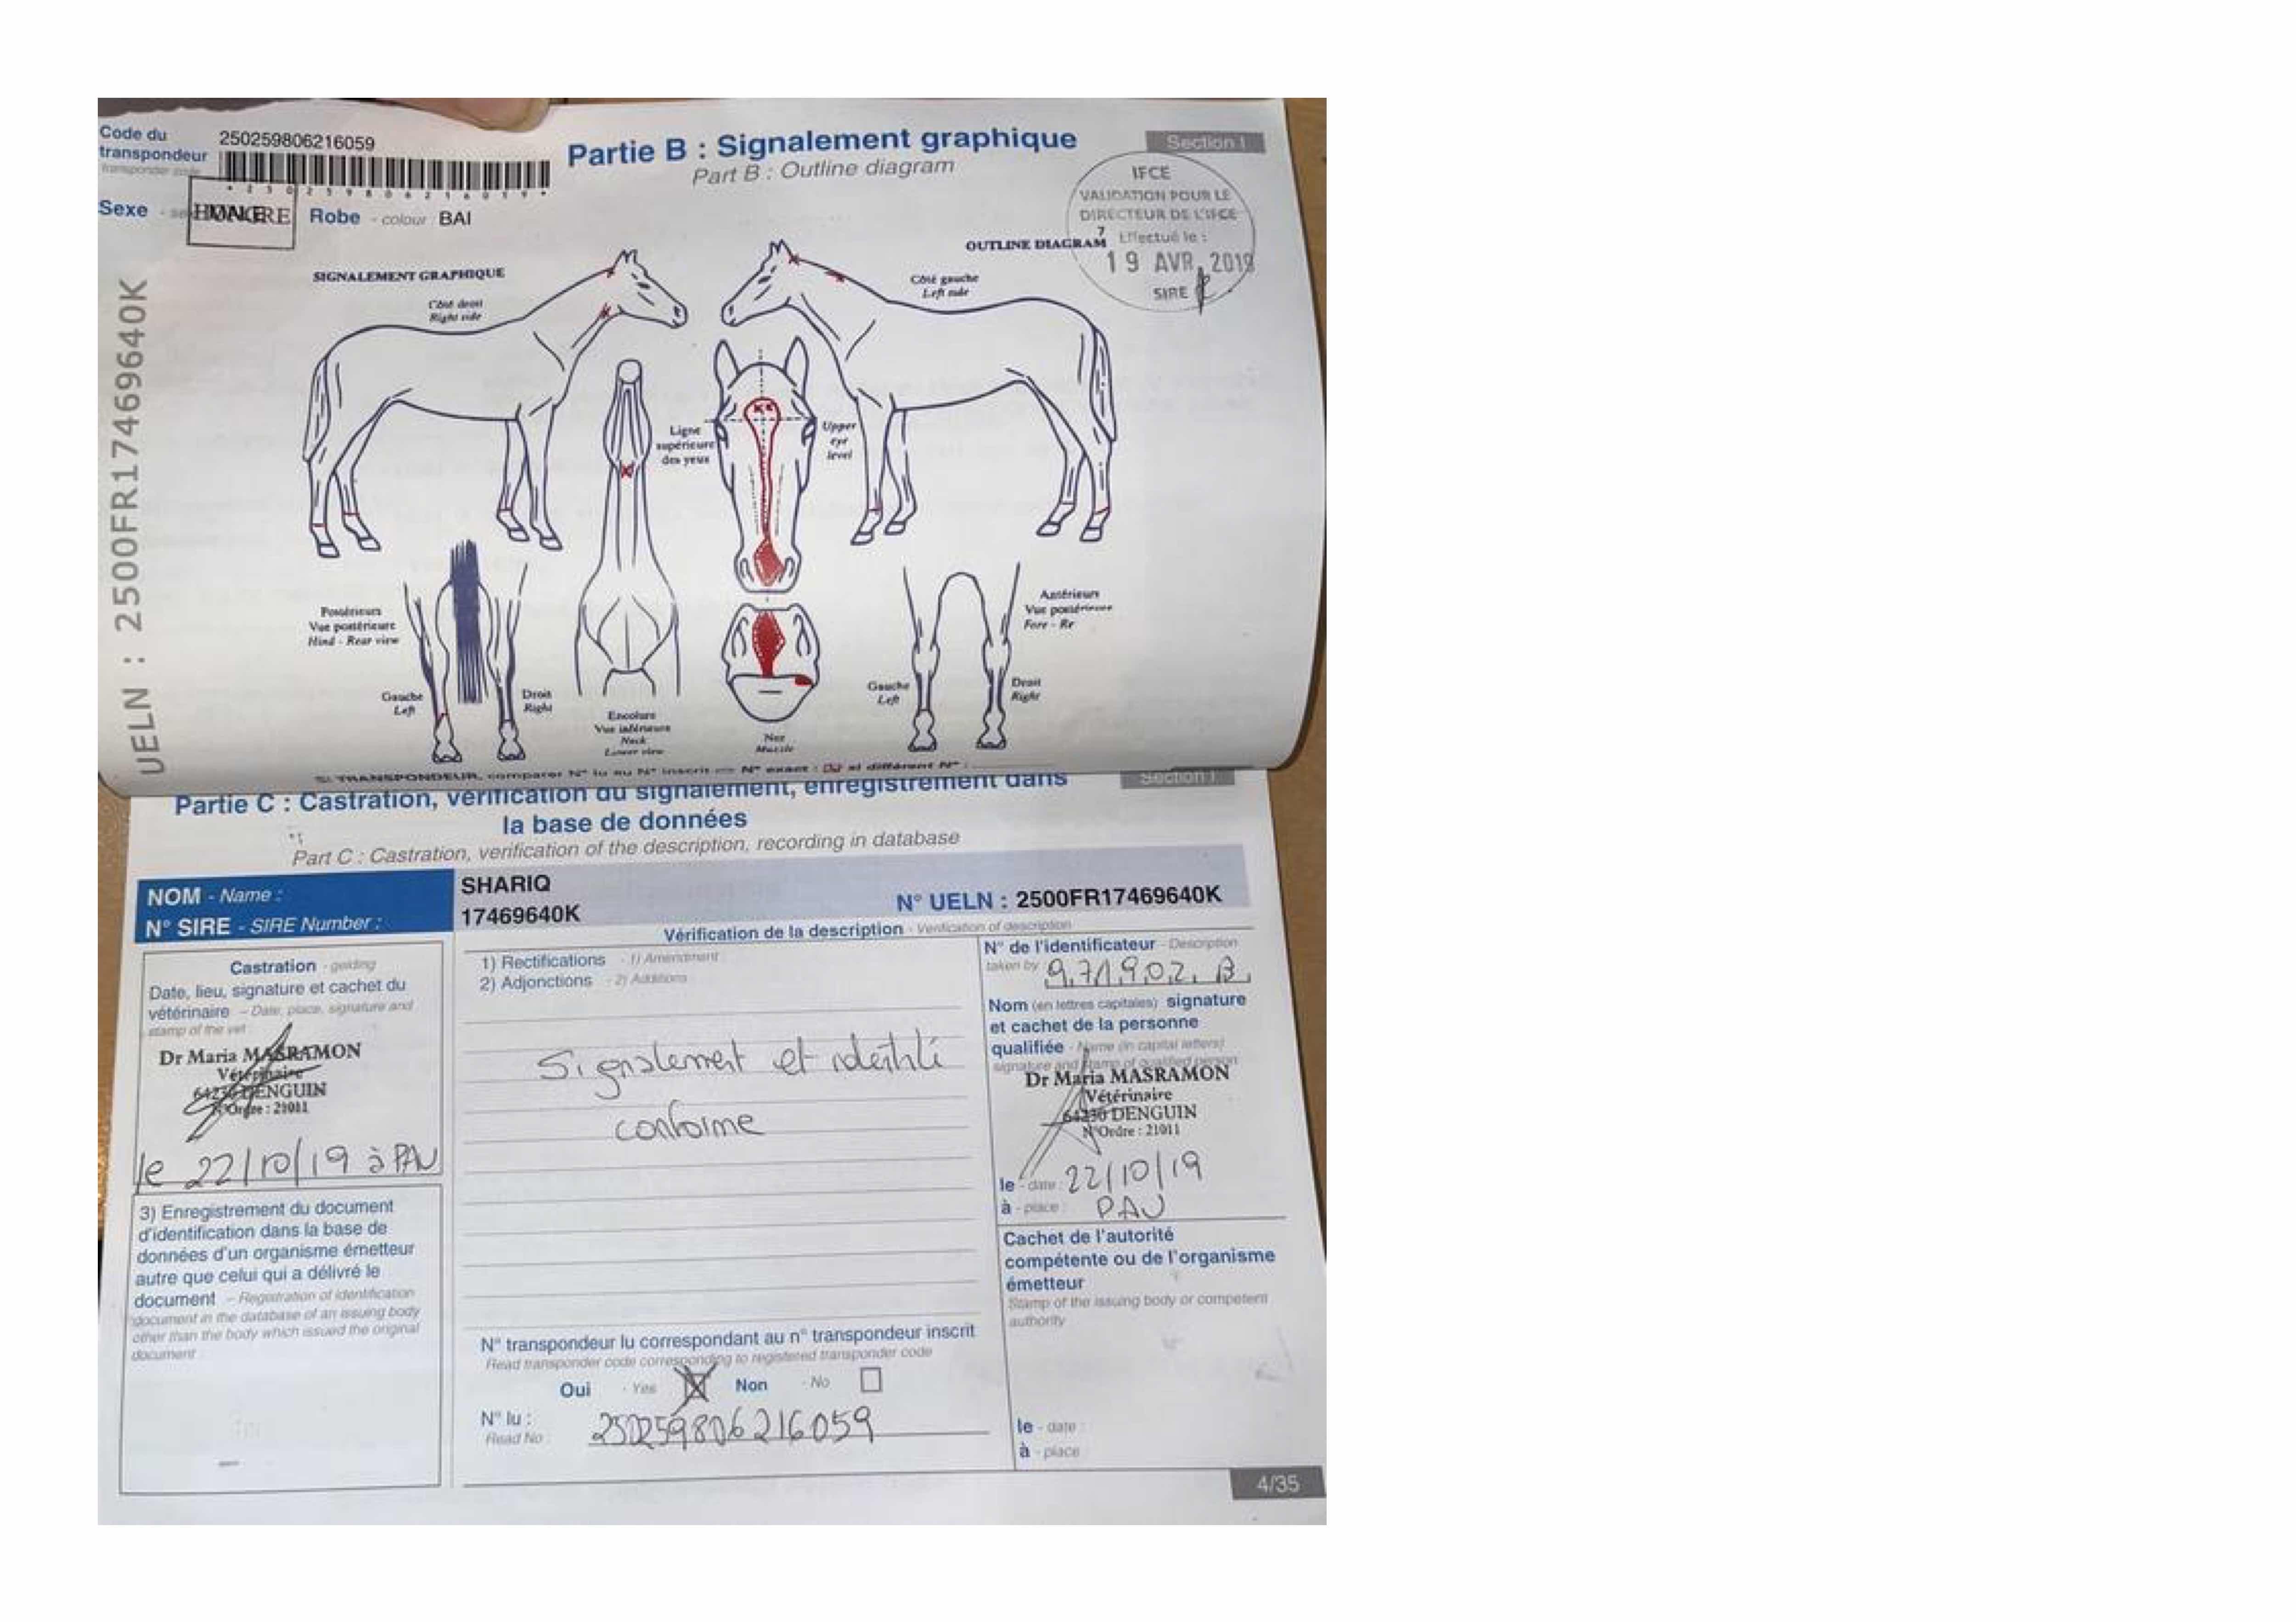 Code du
transpondeur
transponder code
250259806216059
*250259806216059*
Partie B : Signalement graphique
Part B : Outline diagram
Section I
IFCE
VALIDATION POUR LE
DIRECTEUR DE L'IFCE
Effectué le :
19 AVR. 2019
SIRE
Sexe
HONGRE
Robe - colour : BAI
UELN : 2500FR17469640K
SIGNALEMENT GRAPHIQUE
OUTLINE DIAGRAM
Côté droit
Right side
Côté gauche
Left side
Ligne
supérieure
des yeux
Upper
eye
level
Postérieurs
Vue postérieure
Hind - Rear view
Antérieurs
Vue postérieure
Fore - Re
Gauche
Left
Droit
Right
Encolure
Vue inférieure
Neck
Lower view
Nez
Muzzle
Gauche
Left
Droit
Right
SI TRANSPONDEUR, comparer N° lu au N° inscrit => N° exact : si différent N° :
Partie C : Castration, vérification du signalement, enregistrement dans
la base de données
Section I
Part C : Castration, verification of the description, recording in database
NOM - Name :
SHARIQ
N° SIRE - SIRE Number :
17469640K
N° UELN : 2500FR17469640K
Vérification de la description - Verification of description
Castration - gelding
Date, lieu, signature et cachet du
vétérinaire - Date, place, signature and
stamp of the vet
Dr Maria MASRAMON
Vétérinaire
64230 DENGUIN
N°Ordre : 21011
le 22/10/19 à PAU
1) Rectifications - 1) Amendment
2) Adjonctions - 2) Additions
Signalement et identité
conforme
N° de l'identificateur - Description
taken by
971902 B
Nom (en lettres capitales) signature
et cachet de la personne
qualifiée - Name (in capital letters)
signature and stamp of qualified person
Dr Maria MASRAMON
Vétérinaire
64230 DENGUIN
N°Ordre : 21011
le - date : 22/10/19
à - place : PAU
3) Enregistrement du document
d'identification dans la base de
données d'un organisme émetteur
autre que celui qui a délivré le
document - Registration of identification
document in the database of an issuing body
other than the body which issued the original
document :
Cachet de l'autorité
compétente ou de l'organisme
émetteur
Stamp of the issuing body or competent
authority
N° transpondeur lu correspondant au n° transpondeur inscrit
Read transponder code corresponding to registered transponder code
Oui - Yes Non - No
N° lu :
Read No :
250259806216059
le - date :
à - place :
4/35